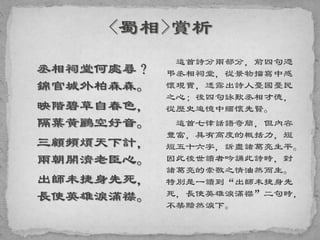 <蜀相>賞析
丞相祠堂何處尋？
錦官城外柏森森。
映階碧草自春色，
隔葉黃鸝空好音。
三顧頻煩天下計，
兩朝開濟老臣心。
出師未捷身先死，
長使英雄淚滿襟。
這首詩分兩部分，前四句憑
弔丞相祠堂，從景物描寫中感
懷現實，透露出詩人憂國憂民
之心；後四句詠歎丞相才德，
從歷史追憶中緬懷先賢。
這首七律話語奇簡，但內容
豐富，具有高度的概括力，短
短五十六字，訴盡諸葛亮生平。
因此後世讀者吟誦此詩時，對
諸葛亮的崇敬之情油然而生。
特別是一讀到“出師未捷身先
死，長使英雄淚滿襟”二句時，
不禁黯然淚下。